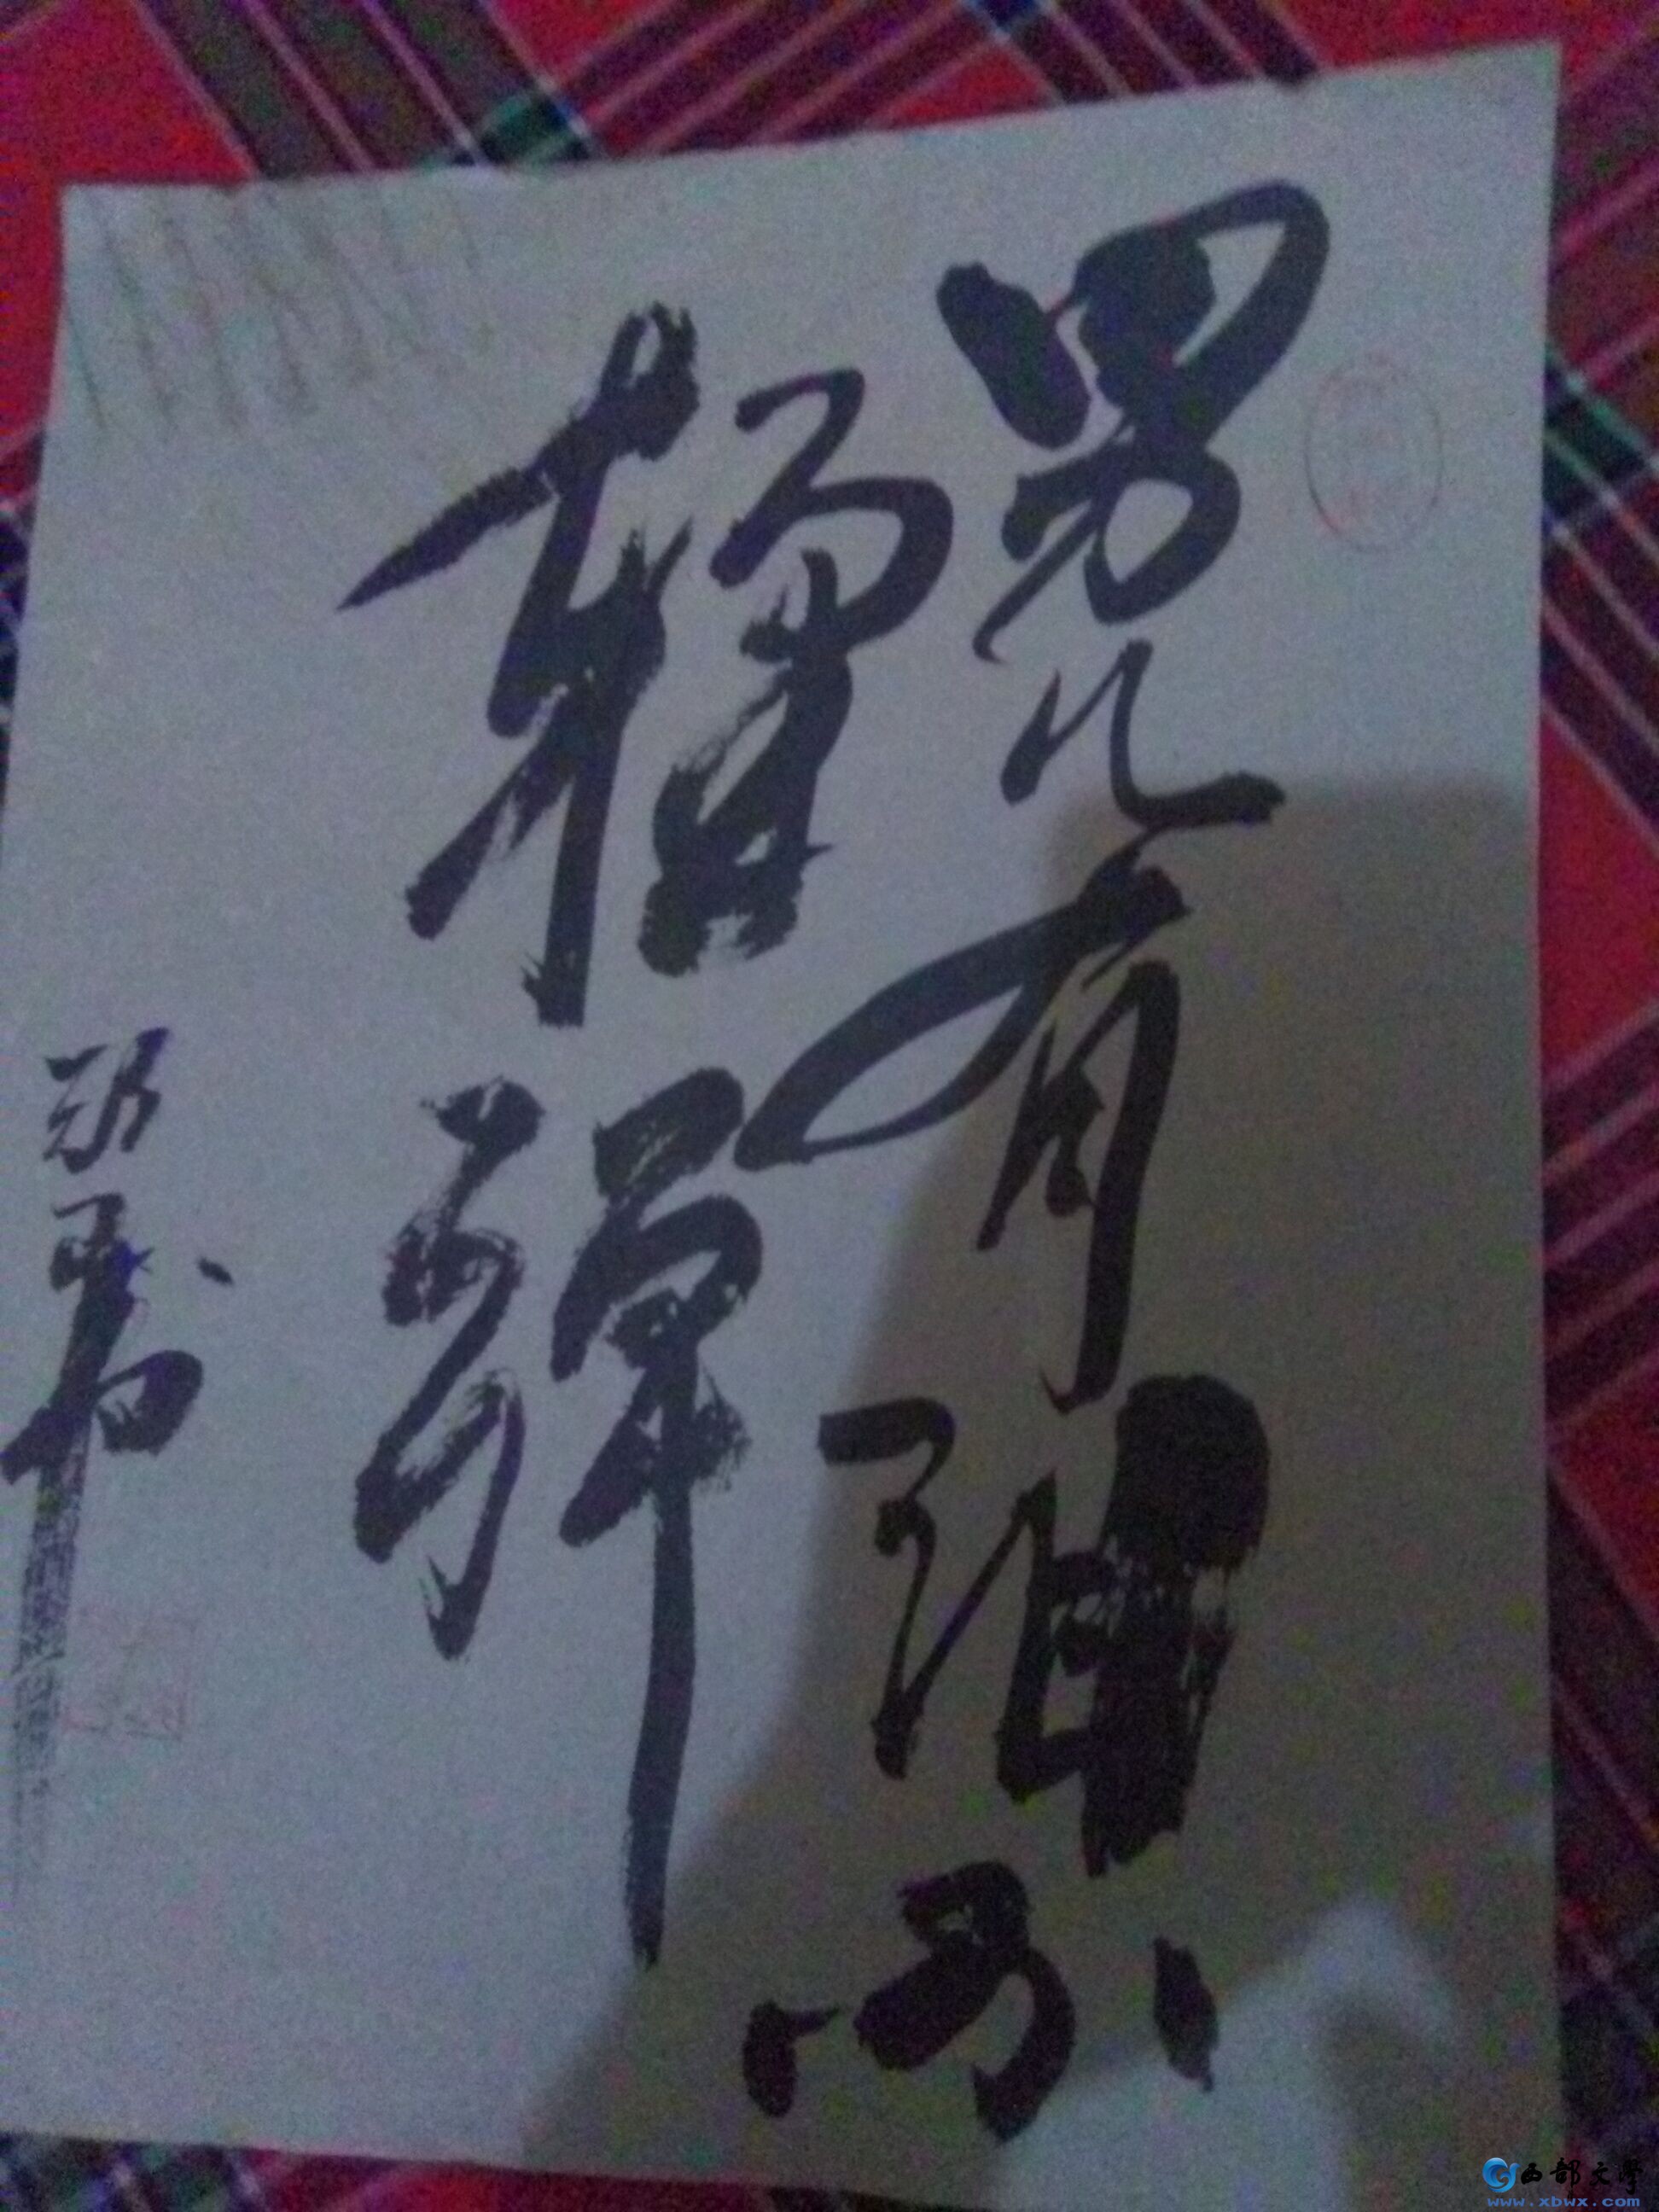 男儿有泪不
轻弹
西部文学
www.xbwx.com